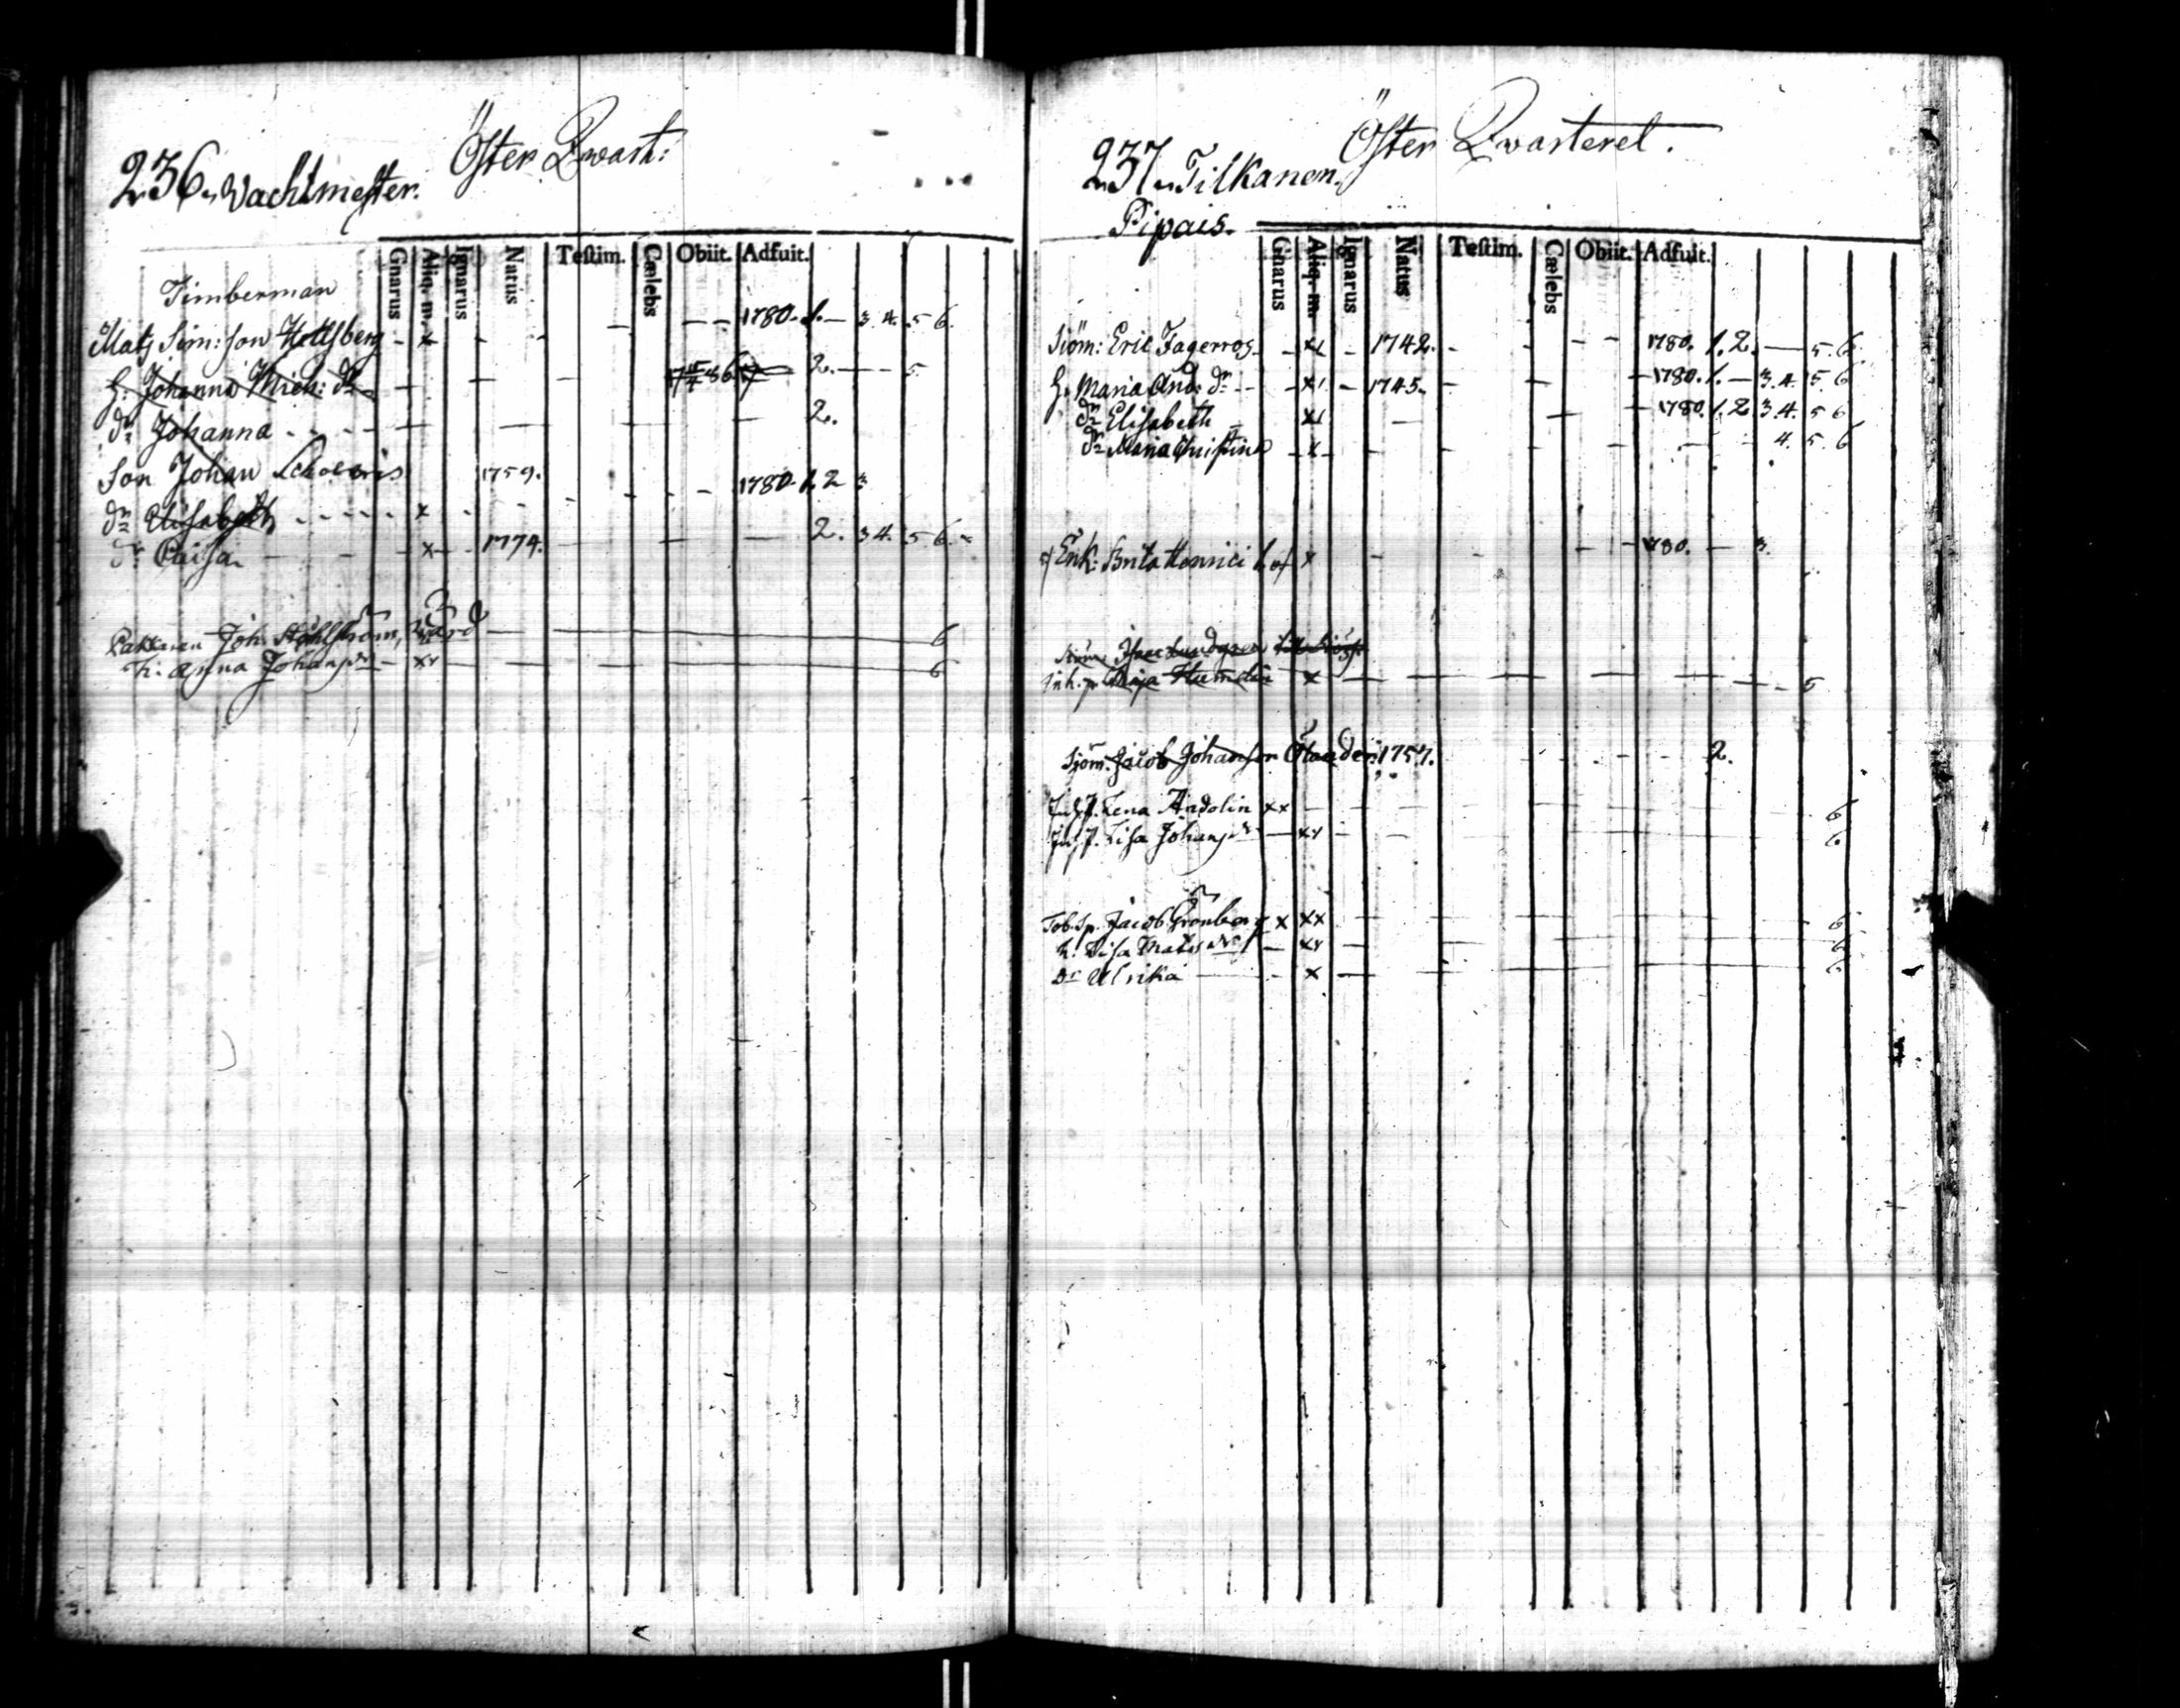 Öster Qwart:
236. Wachtmester.
Gnarus Aliq. m. Ignarus Natus Testim. Cælebs Obiit. Adfuit.
Timberman
Matz Sim: son - x - - - - - 1780. 1. - 3. 4. 5 6.
H. Johanna Mich: dr - - - 2. - - 5.
dr Johanna - - - - 2.
Son Johan 1759. - - - - 1780. 1. 2 3
dr Elisabeth - - - - - x -
dr Caisa - - x - 1774. - - - 2. 3 4. 5 6.
Joh. Ståhlström, - - 6
h. Anna Johansdr - xx - - 6
Öster Qwarteret.
237. Tilkanen.
Pipais.
Gnarus Aliq. m. Ignarus Natus Testim. Cælebs Obiit. Adfuit.
Sjöm: Eric Fageroos - x1 - 1742. - - - - 1780. 1. 2. - 5. 6.
H. Maria And: dr - - x1 - 1745. - - - 1780. 1. - 3. 4. 5. 6
dr Elisabeth - x1 - - - 1780. 1. 2 3. 4. 5 6
dr Maria Christina - x - - - - - - 4. 5. 6
Enk: Brita Henrici x - - - - 1780. - 3.
Lundgren
Inh. p. Maja x - - - - - - 5
Sjöm. Jacob Johansson 1757. - - - - - 2.
Lena Andolin xx - - - - - 6
Lisa Johansdr - xx - - - - 6.
Jacob Grönberg x xx - - - - 6
h. Lisa Matsdr - xx - - - 6
Dr Ulrika - - x - - - - 6